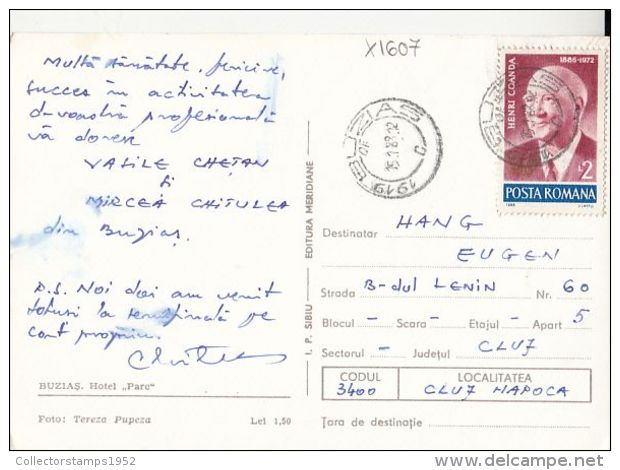 X1607
Multă sănătate, fericire,
succes în activitatea
d-voastră profesională
vă doresc
VASILE CHEȚAN
și
MIRCEA CHITULEA
din Buziaș.
P.S. Noi doi am venit
totuși la
cont propriu.
BUZIAȘ. Hotel „Parc”
Foto: Tereza Pupeza Lei 1,50
I. P. SIBIU EDITURA MERIDIANE
BUZIAS
15.1.89.12
1919
1886-1972
HENRI COANDA
L2
POSTA ROMANA
HANG
Destinatar
EUGEN
Strada B-dul LENIN Nr. 60
Blocul - Scara - Etajul - Apart 5
Sectorul - Județul CLUJ
CODUL LOCALITATEA
3400 CLUJ NAPOCA
Țara de destinație
Collectorstamps1952
delcampe.net